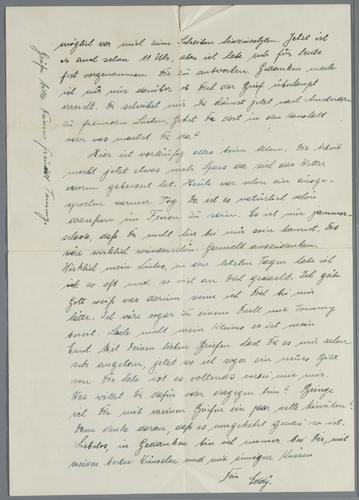 möglich vor mich zum Schreiben hinzusetzen. Jetzt ist
es auch schon 11 Uhr, aber ich habe mir für heute
fest vorgenommen Dir zu antworten. Gedanken mache
ich mir nur darüber ob Dich der Brief überhaupt
erreicht. Du schriebst mir Du kämst jetzt nach
zu fremden Leuten. Gehst Du dort in den Haushalt
oder was machst Du da?
Hier ist vorläufig alles beim alten. Die Arbeit
macht jetzt etwas mehr Spass da sich das Wetter
enorm gebessert hat. Heute war schon ein ausge-
sprochen warmer Tag. Da ist es natürlich schön
draußen im Freien zu sein. Es ist nur jammer-
schade, daß Du nicht hier bei mir sein kannst. Das
wäre wirklich wunderschön. Garnicht auszudenken.
Wirklich mein Liebes, in den letzten Tagen habe ich
so oft und so viel an Dich gedacht. Ich gäbe
Gott weiß was darum wenn ich Dich bei mir
hätte. Ich wäre sogar zu einem Duell mit Tommy
bereit. Lache nicht mein Kleines es ist mein
Ernst. Mit Deinen lieben Briefen hast Du es mir schon
sehr angetan, jetzt wo ich sogar ein neues Bild
von Dir habe ist es vollends vorbei mit mir.
Was willst Du dafür oder dagegen tun? Bringe
ich Dir mit meinen Briefen ein paar nette Minuten?
Dann denke daran, daß es umgekehrt genau so ist.
Liebstes, in Gedanken bin ich immer bei Dir, mit
meinen besten Wünschen und mit innigen Küssen
Dein
Grüße bitte Deinen Freund Tommy.